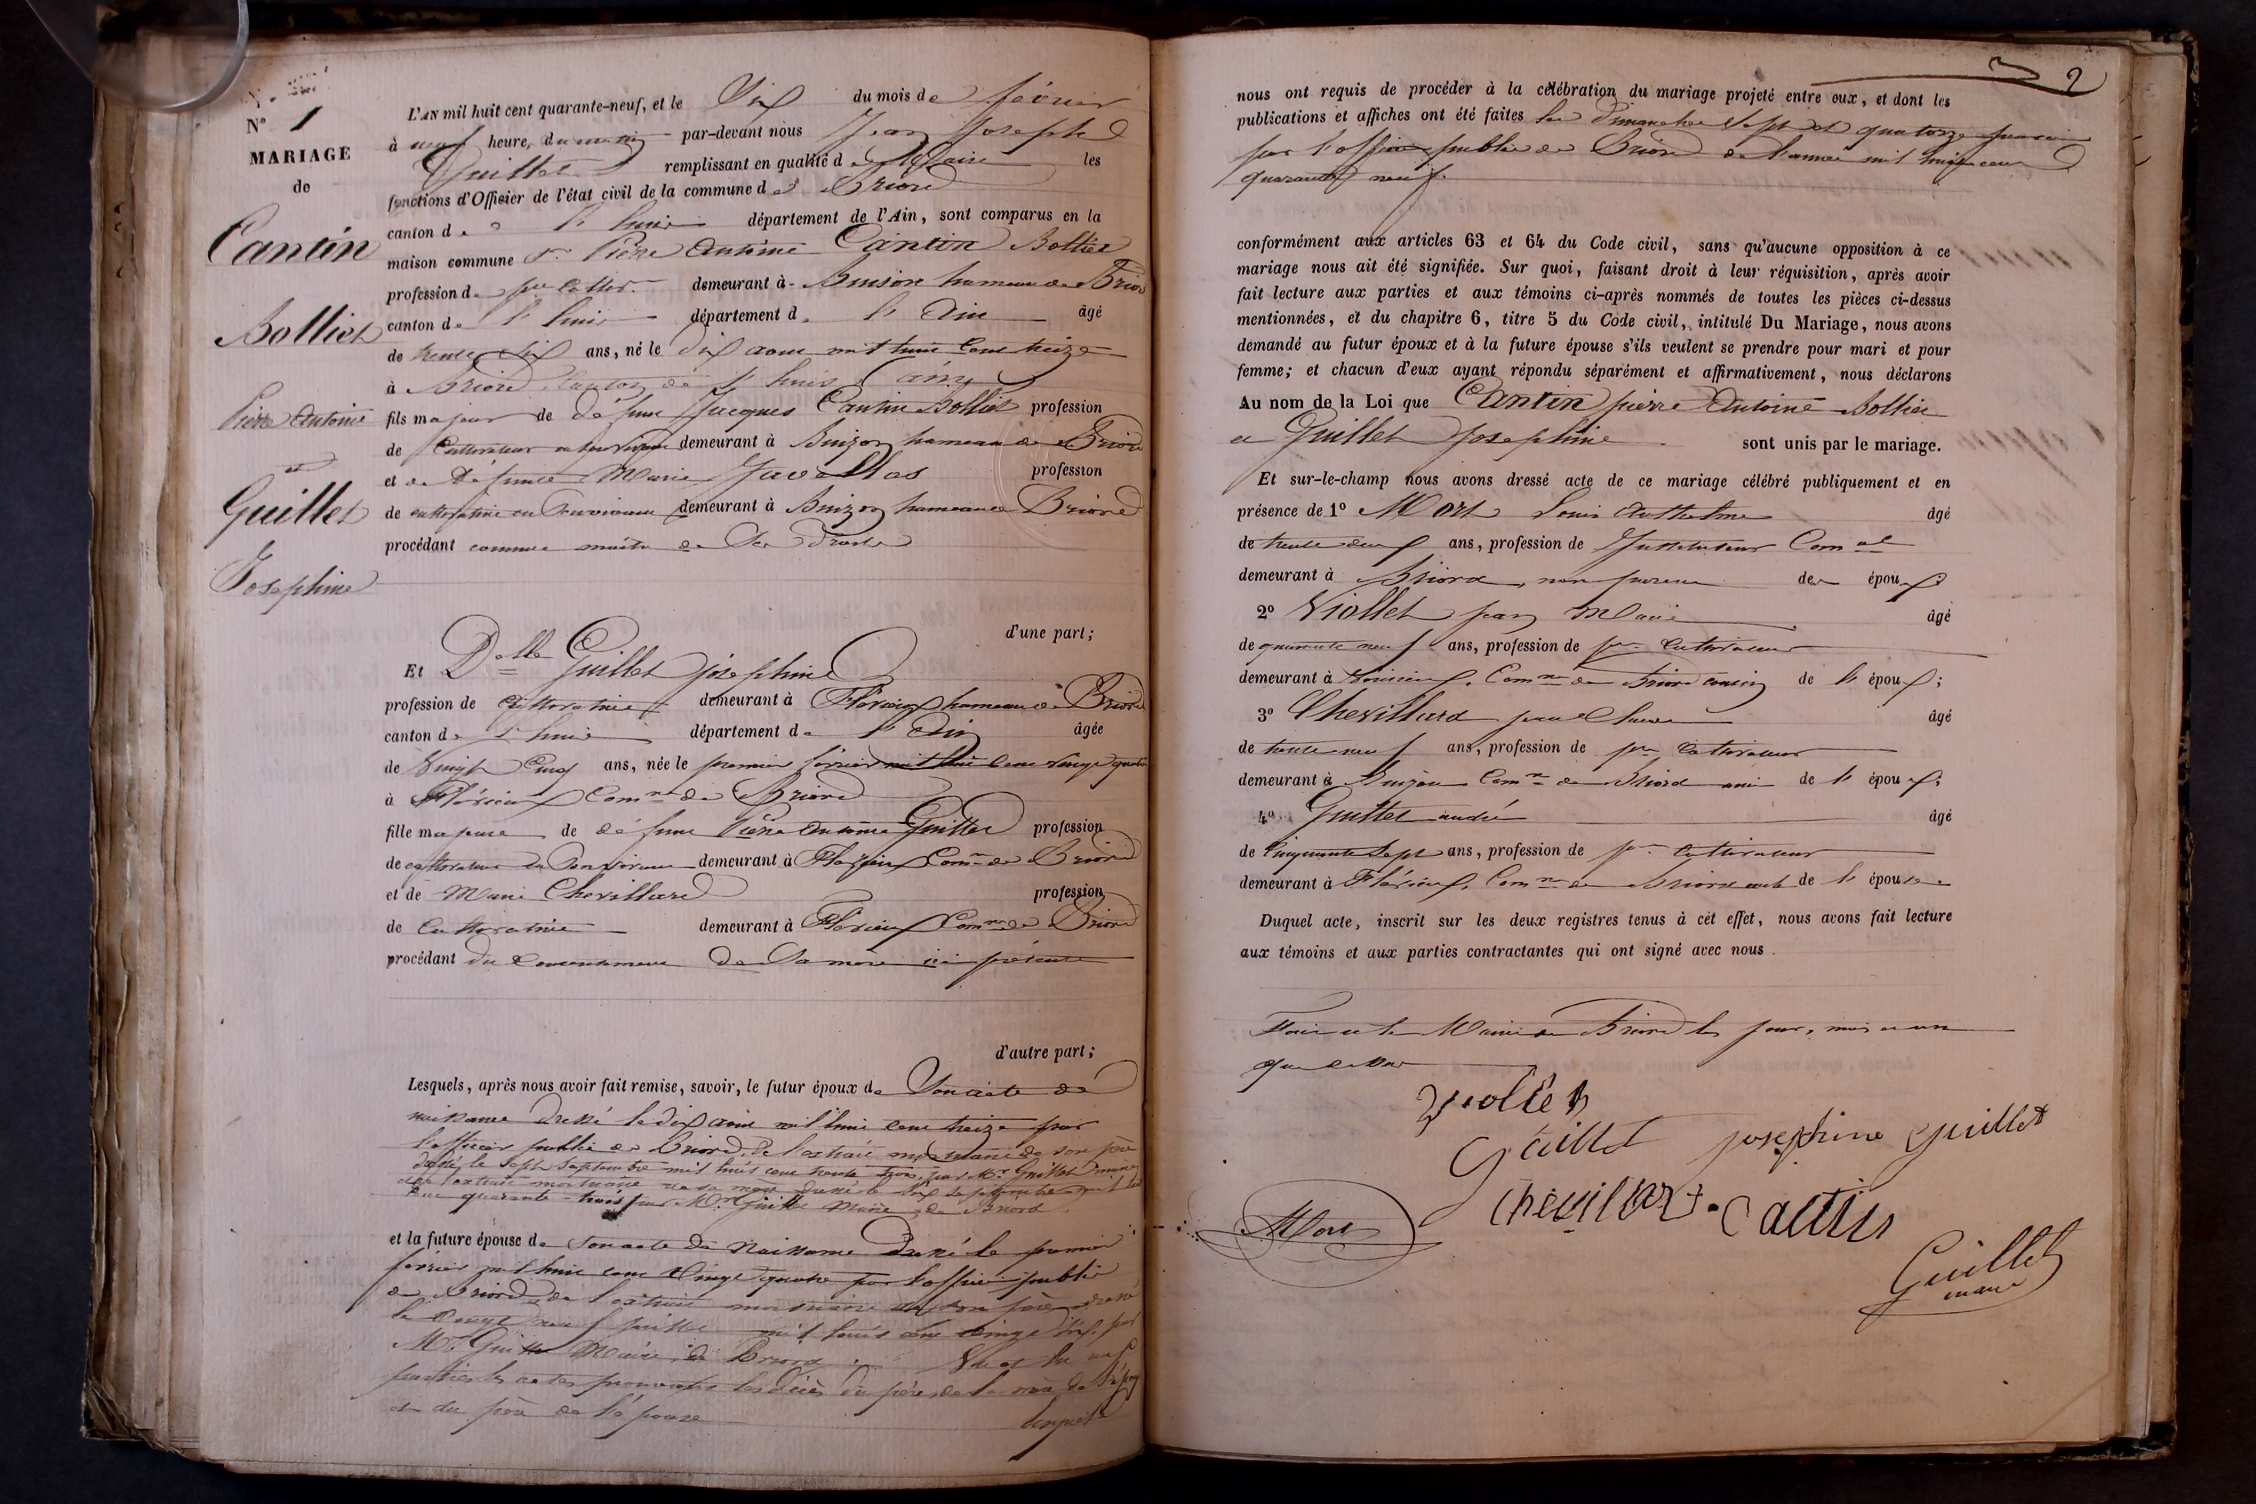 N° 1
MARIAGE
de
Cantin
Bolliet
Pierre Antoine
et
Guillet
Josephine
L'AN mil huit cent quarante-neuf, et le Six du mois de février
à neuf heure, du matin par-devant nous Jean Joseph
Guillet remplissant en qualité de Maire les
fonctions d'Officier de l'état civil de la commune de Briord
canton de l'huis département de l'Ain, sont comparus en la
maison commune Sr Pierre Antoine Cantin Bolliet
profession de demeurant à hameau de Briord
canton de l'huis département de l'Ain âgé
de trente Six ans, né le dix aout mil huit cent treize
à Briord Canton de l'huis (ain)
fils majeur de défunt Jacques Cantin Bolliet profession
de Cultivateur demeurant à Buizon hameau de Briord
et de défunte Marie Javellas profession
de cultivatrice en son vivant demeurant à Buizon hameau de Briord
procédant comme maitre de Ses droits
d'une part;
Et Delle Guillet josephine
profession de Cultivatrice demeurant à Flérieux hameau de Briord
canton de l'huis département de l'Ain âgée
de Vingt Cinq ans, née le premier février mil huit cent vingt quatre
à Flérieux Comne de Briord
fille majeure de défunt Pierre Antoine Guillet profession
de cultivateur en Son vivant demeurant à Flérieux Comne de Briord
et de Marie Chevillard profession
de Cultivatrice demeurant à Flérieux Comne de Briord
procédant du Consentement de Sa mère ici présente
d'autre part;
Lesquels, après nous avoir fait remise, savoir, le futur époux de Son acte de
naissance dressé le dix aout mil huit cent treize par
l'officier public de Briord, de l'extrait mortuaire de son père
dressé le sept Septembre mil huit cent trente trois par Mr Guillet maire
de l'extrait mortuaire de sa mère dressé le Six Septembre mil huit
cent quarante-trois par Mr Guillet Maire de Briord
et la future épouse de Son acte de Naissance Dressé le premier
février mil huit cent Vingt quatre par l'officier public
de Briord de l'extrait mortuaire de son père dressé
le Vingt neuf juillet mil huit cent vingt Six par
Mr Guillet Maire de Briord. Vu et lu aux
parties les actes prouvants les décès du père de la mère de l'époux
et du père de l'épouse lesquels
2
nous ont requis de procéder à la célébration du mariage projeté entre eux, et dont les
publications et affiches ont été faites les Dimanches Sept et quatorze janvier
par l'officier public de Briord de l'année mil huit cent
quarante neuf.
conformément aux articles 63 et 64 du Code civil, sans qu'aucune opposition à ce
mariage nous ait été signifiée. Sur quoi, faisant droit à leur réquisition, après avoir
fait lecture aux parties et aux témoins ci-après nommés de toutes les pièces ci-dessus
mentionnées, et du chapitre 6, titre 5 du Code civil, intitulé Du Mariage, nous avons
demandé au futur époux et à la future épouse s'ils veulent se prendre pour mari et pour
femme; et chacun d'eux ayant répondu séparément et affirmativement, nous déclarons
Au nom de la Loi que Cantin pierre Antoine Bolliet
et Guillet Josephine sont unis par le mariage.
Et sur-le-champ nous avons dressé acte de ce mariage célébré publiquement et en
présence de 1° Mort Louis Anthelme âgé
de trente deux ans, profession de Instituteur Comal
demeurant à Briord, non parent des époux;
2° Viollet jean Marie âgé
de quarante neuf ans, profession de pre Cultivateur
demeurant à Comne de Briord cousin de l'époux;
3° Chevillard âgé
de trente neuf ans, profession de pre Cultivateur
demeurant à Buizon Comne de Briord ami de l'époux;
4° Guillet andré âgé
de Cinquante Sept ans, profession de pre Cultivateur
demeurant à Flérieux, Comne de Briord oncle de l'épouse
Duquel acte, inscrit sur les deux registres tenus à cet effet, nous avons fait lecture
aux témoins et aux parties contractantes qui ont signé avec nous.
Fait à la Mairie de Briord les jour, mois et an
que dessus
Violle
Guillet josephine guillet
Mort Chevillard. Cantin
Guillet
maire